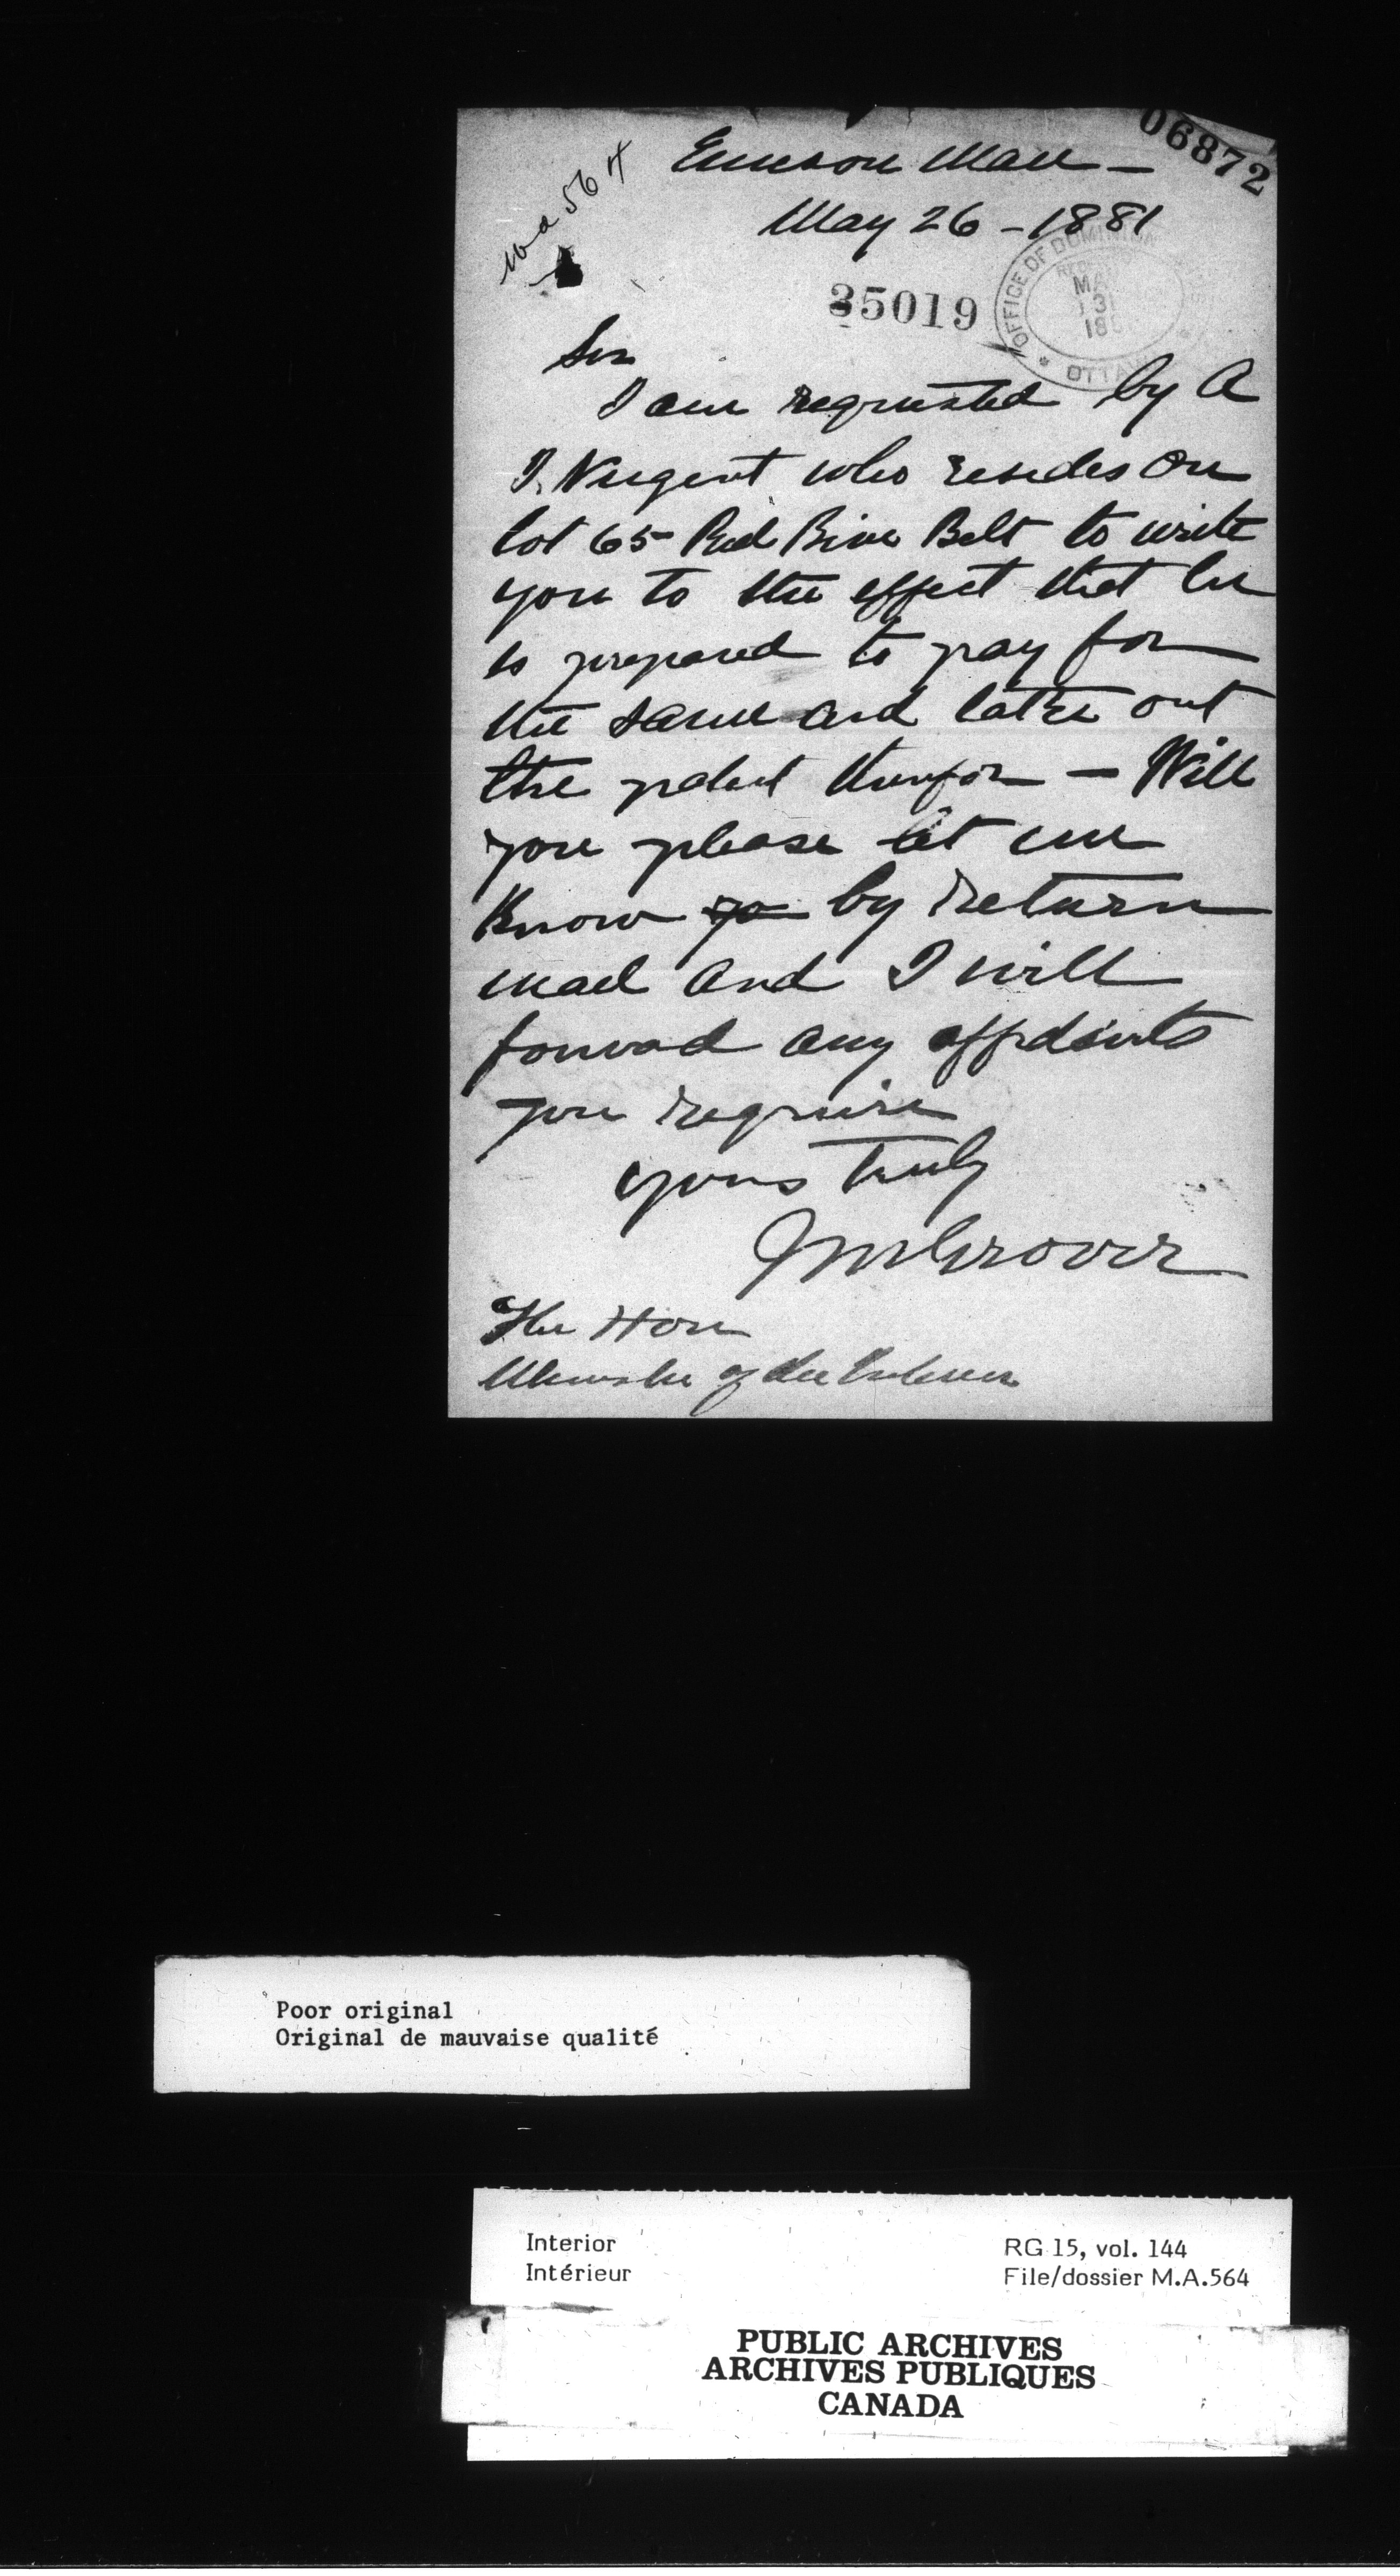 06872
M a 564
Emerson Man —
May 26 - 1881
OFFICE OF DOMINION
OTTAWA
35019
Sir
I am requested by A
J. Nugent who resides on
lot 65 Red River Belt to write
you to the effect that he
is prepared to pay for
the same and take out
the patent therefor — Will
you please let me
know by return
mail and I will
forward any affidavits
you require
yours truly
The Hon
Minister of the Interior
Poor original
Original de mauvaise qualité
Interior
Intérieur
RG 15, vol. 144
File/dossier M.A.564
PUBLIC ARCHIVES
ARCHIVES PUBLIQUES
CANADA